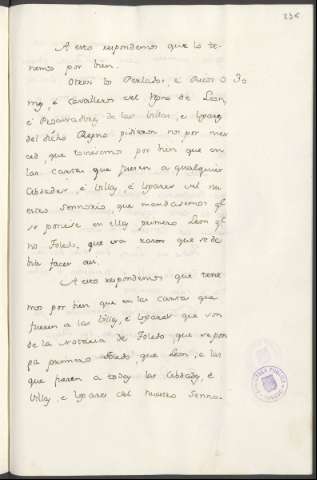 236
A esto respondemos que lo te-
nemos por bien.
Otrosi los Perlados é Ricos O
mes, é Cavalleros del Regno de Leon,
é Procuradores de las Villas, e Logares
del dicho Regno pidieron nos por mer
ced, que toviesemos por bien que en
las cartas que fuesen a qualquier
Cibdades, é Villas, é Logares del nu
estro Sennorio, que mandasemos q
se poniese en ellas primero Leon q
no Toledo, que era razon que se de
bia facer asi.
A esto respondemos que tene
mos por bien que en las cartas que
fueren a las Villas, é Logares que son
de la Notaria de Toledo, que se pon
ga primero Toledo, que Leon, e las
que fueren a todas las Cibdades, é
Villas, e Logares del nuestro Senno-